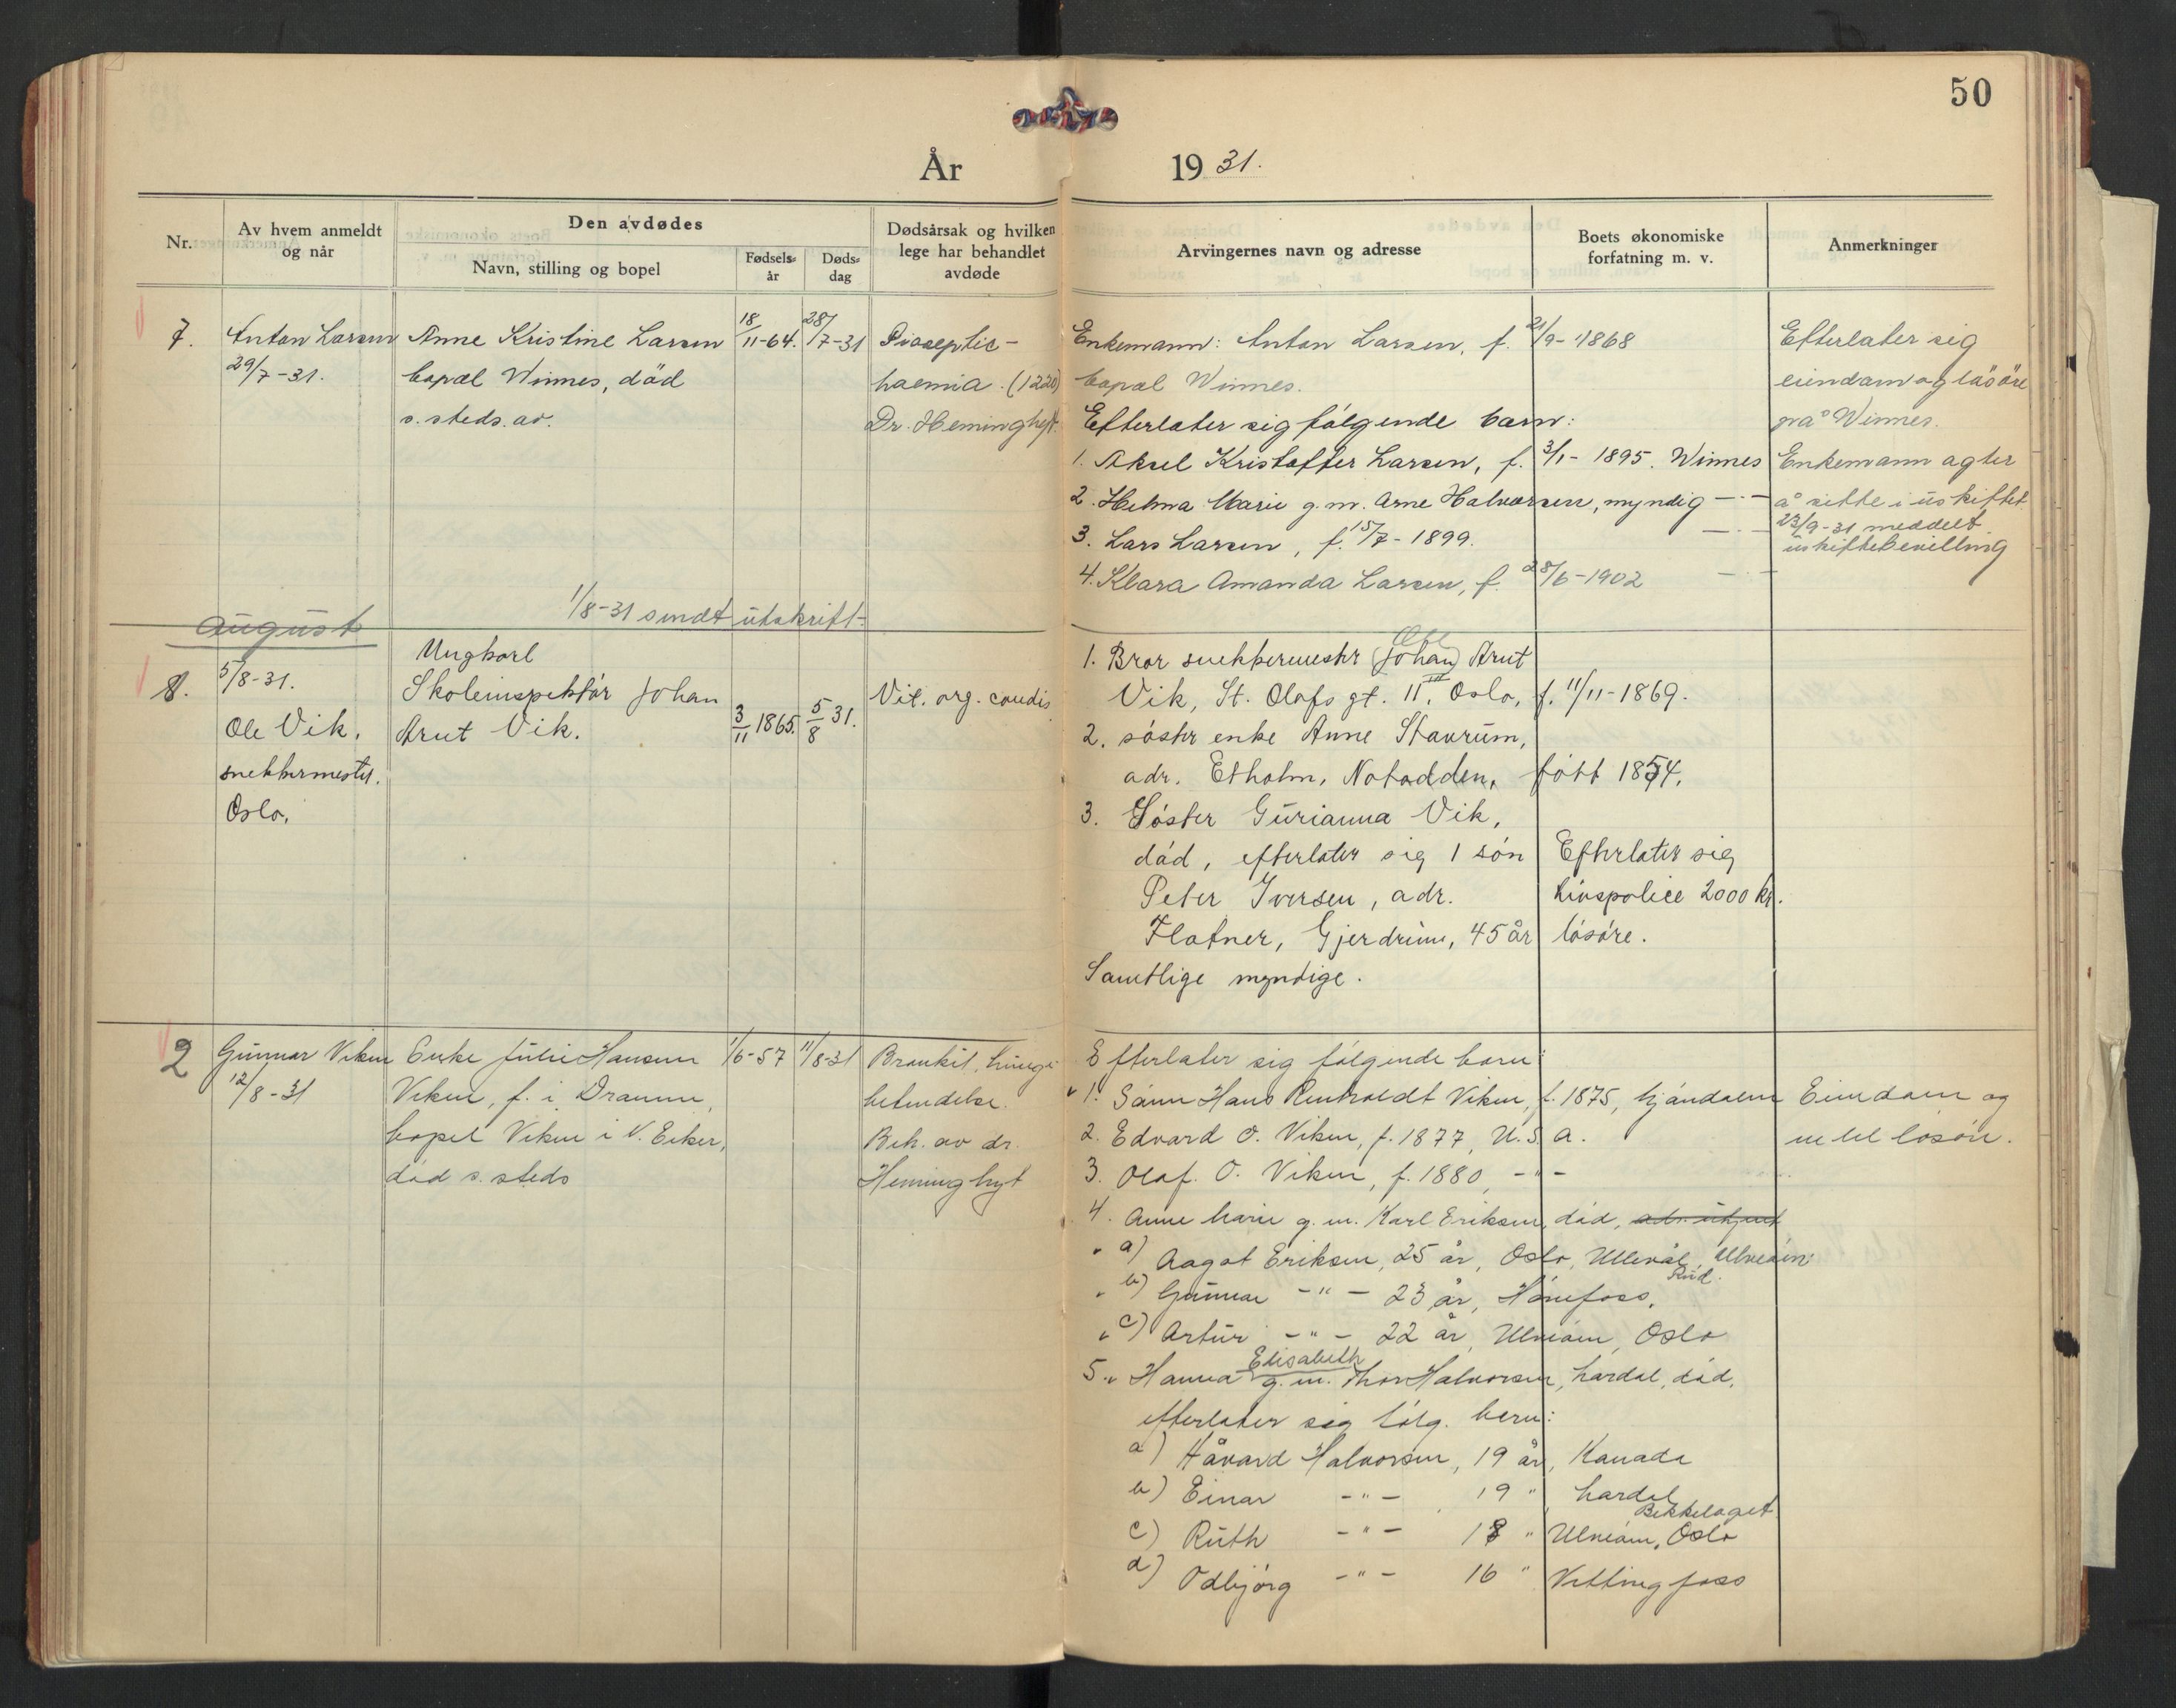 50
År 1931.
Nr.
Av hvem anmeldt
og når
Den avdødes
Navn, stilling og bopel
Fødsels-
år
Døds-
dag
Dødsårsak og hvilken
lege har behandlet
avdøde
Arvingernes navn og adresse
Boets økonomiske
forfatning m. v.
Anmerkninger
7.
Anton Larsen
29/7-31.
Anne Kristine Larsen
bopæl Winnes, død
s. steds. av.
18/11-64.
28/7-31
haemia. (1220)
Dr. Heminghyt.
Enkemann: Anton Larsen, f. 21/9-1868
bopæl Winnes.
Efterlater sig følgende barn:
1. Aksel Kristoffer Larsen, f. 3/1-1895. Winnes
2. Helma Marie g.m. Arne Halvorsen, myndig -"-
3. Lars Larsen, f. 15/7-1899. -"-
4. Klara Amanda Larsen, f. 28/6-1902 -"-
Efterlater sig
eiendom og løsøre
på Winnes.
Enkemann agter
å sitte i uskiftet
23/9-31 meddelt
uskiftebevilling
1/8-31 sendt utskrift
August
8.
5/8-31.
Ole Vik,
snekkermester.
Oslo.
Ungkarl
Skoleinspektør Johan
Arut Vik.
3/11 1865.
5/8 31.
Vit. org. cordis
1. Bror snekkermester (Johan) Ole Arut
Vik, St. Olafs gt. 11 III, Oslo, f. 11/11-1869.
2. søster enke Anne Stavrum,
adr. Etholm, Notodden, født 1854.
3. Søster Gurianna Vik,
død, efterlater sig 1 søn
Peter Iversen, adr.
Flatner, Gjerdrum, 45 år
Samtlige myndige.
Efterlater sig
Livspolice 2000 kr.
løsøre.
2
Gunnar Viken
12/8-31
Enke Julie Hansen
Viken, f. i Drammen,
bopel Viken i N. Eiker,
død s. steds
1/6-57
11/8-31
Bronkit, lunge
betendelse.
Beh. av dr.
Heminghyt
Efterlater sig følgende barn:
1. Sønn Hans Reinholdt Viken, f. 1875, Mjøndalen
2. Edvard O. Viken, f. 1877, U.S.A.
3. Olaf. O. Viken, f. 1880, -"-
4. Anne Marie g.m. Karl Eriksen, død,
a) Aagot Eriksen, 25 år, Oslo, Ullevål
b) Gunnar -"- 23 år, Hønefoss.
c) Artur -"- 22 år, Ulvøen, Oslo
5. Hanna Elisabeth g.m. Thor Halvorsen, Lardal, død,
efterlater sig følg. barn:
a) Håvard Halvorsen, 19 år, Kanada
b) Einar -"- 19 " Lardal
c) Ruth -"- 18 " Ulvøen, Oslo Bekkelaget
d) Odbjørg -"- 16 " Vittingfoss
Eiendom og
litt løsøre.